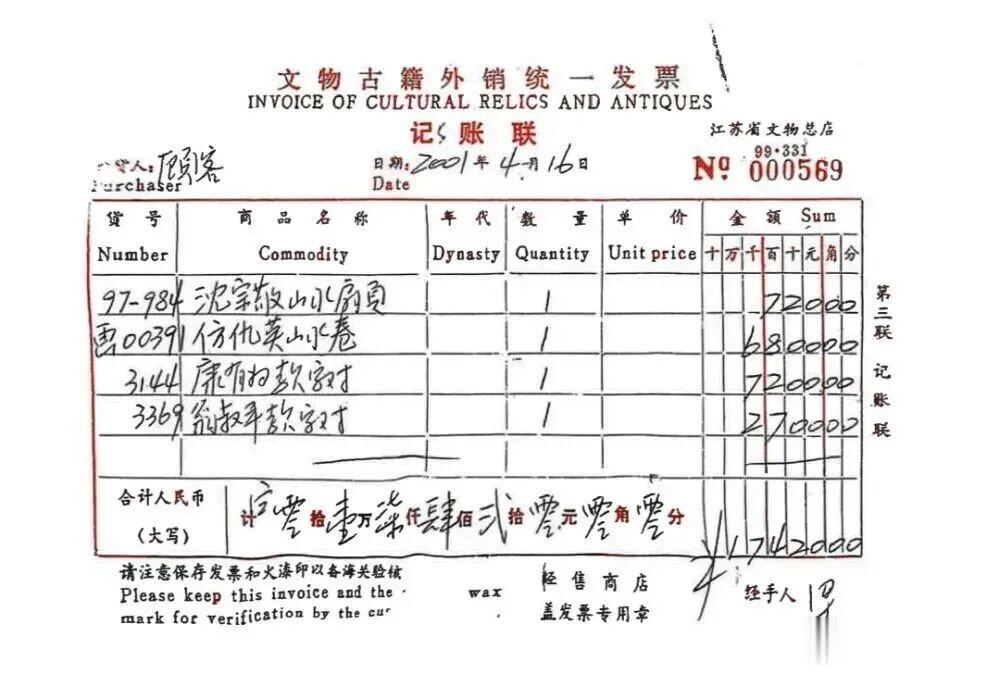 文物古籍外销统一发票
INVOICE OF CULTURAL RELICS AND ANTIQUES
记账联
江苏省文物总店
货人: 顾客 日期: 2001年4月16日 99·331
Purchaser Date Nº 000569
货号 商品名称 年代 数量 单价 金额 Sum
Number Commodity Dynasty Quantity Unit price 十万千百十元角分
97-984 沈宗敬山水扇页 1 72000
画00391 仿仇英山水卷 1 680000
3144 康有为款字对 1 720000
3369 翁叔平款字对 1 270000
合计人民币 计 零拾壹万柒仟肆佰贰拾零元零角零分
(大写) ¥1742000
请注意保存发票和火漆印以备海关验核 经售商店 经手人
Please keep this invoice and the wax 盖发票专用章
mark for verification by the cus
第三联 记账联